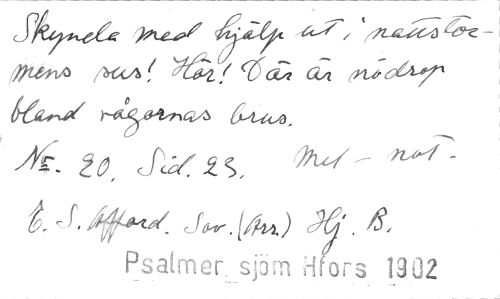 Skynda med hjälp ut i nattstor-
mens sus! Hör! Där är nödrop
bland vågornas brus.
No. 20. Sid. 23. Mel - not.
E. S. Ufford. Sov. (Arr.) Hj. B.
Psalmer sjöm Hfors 1902